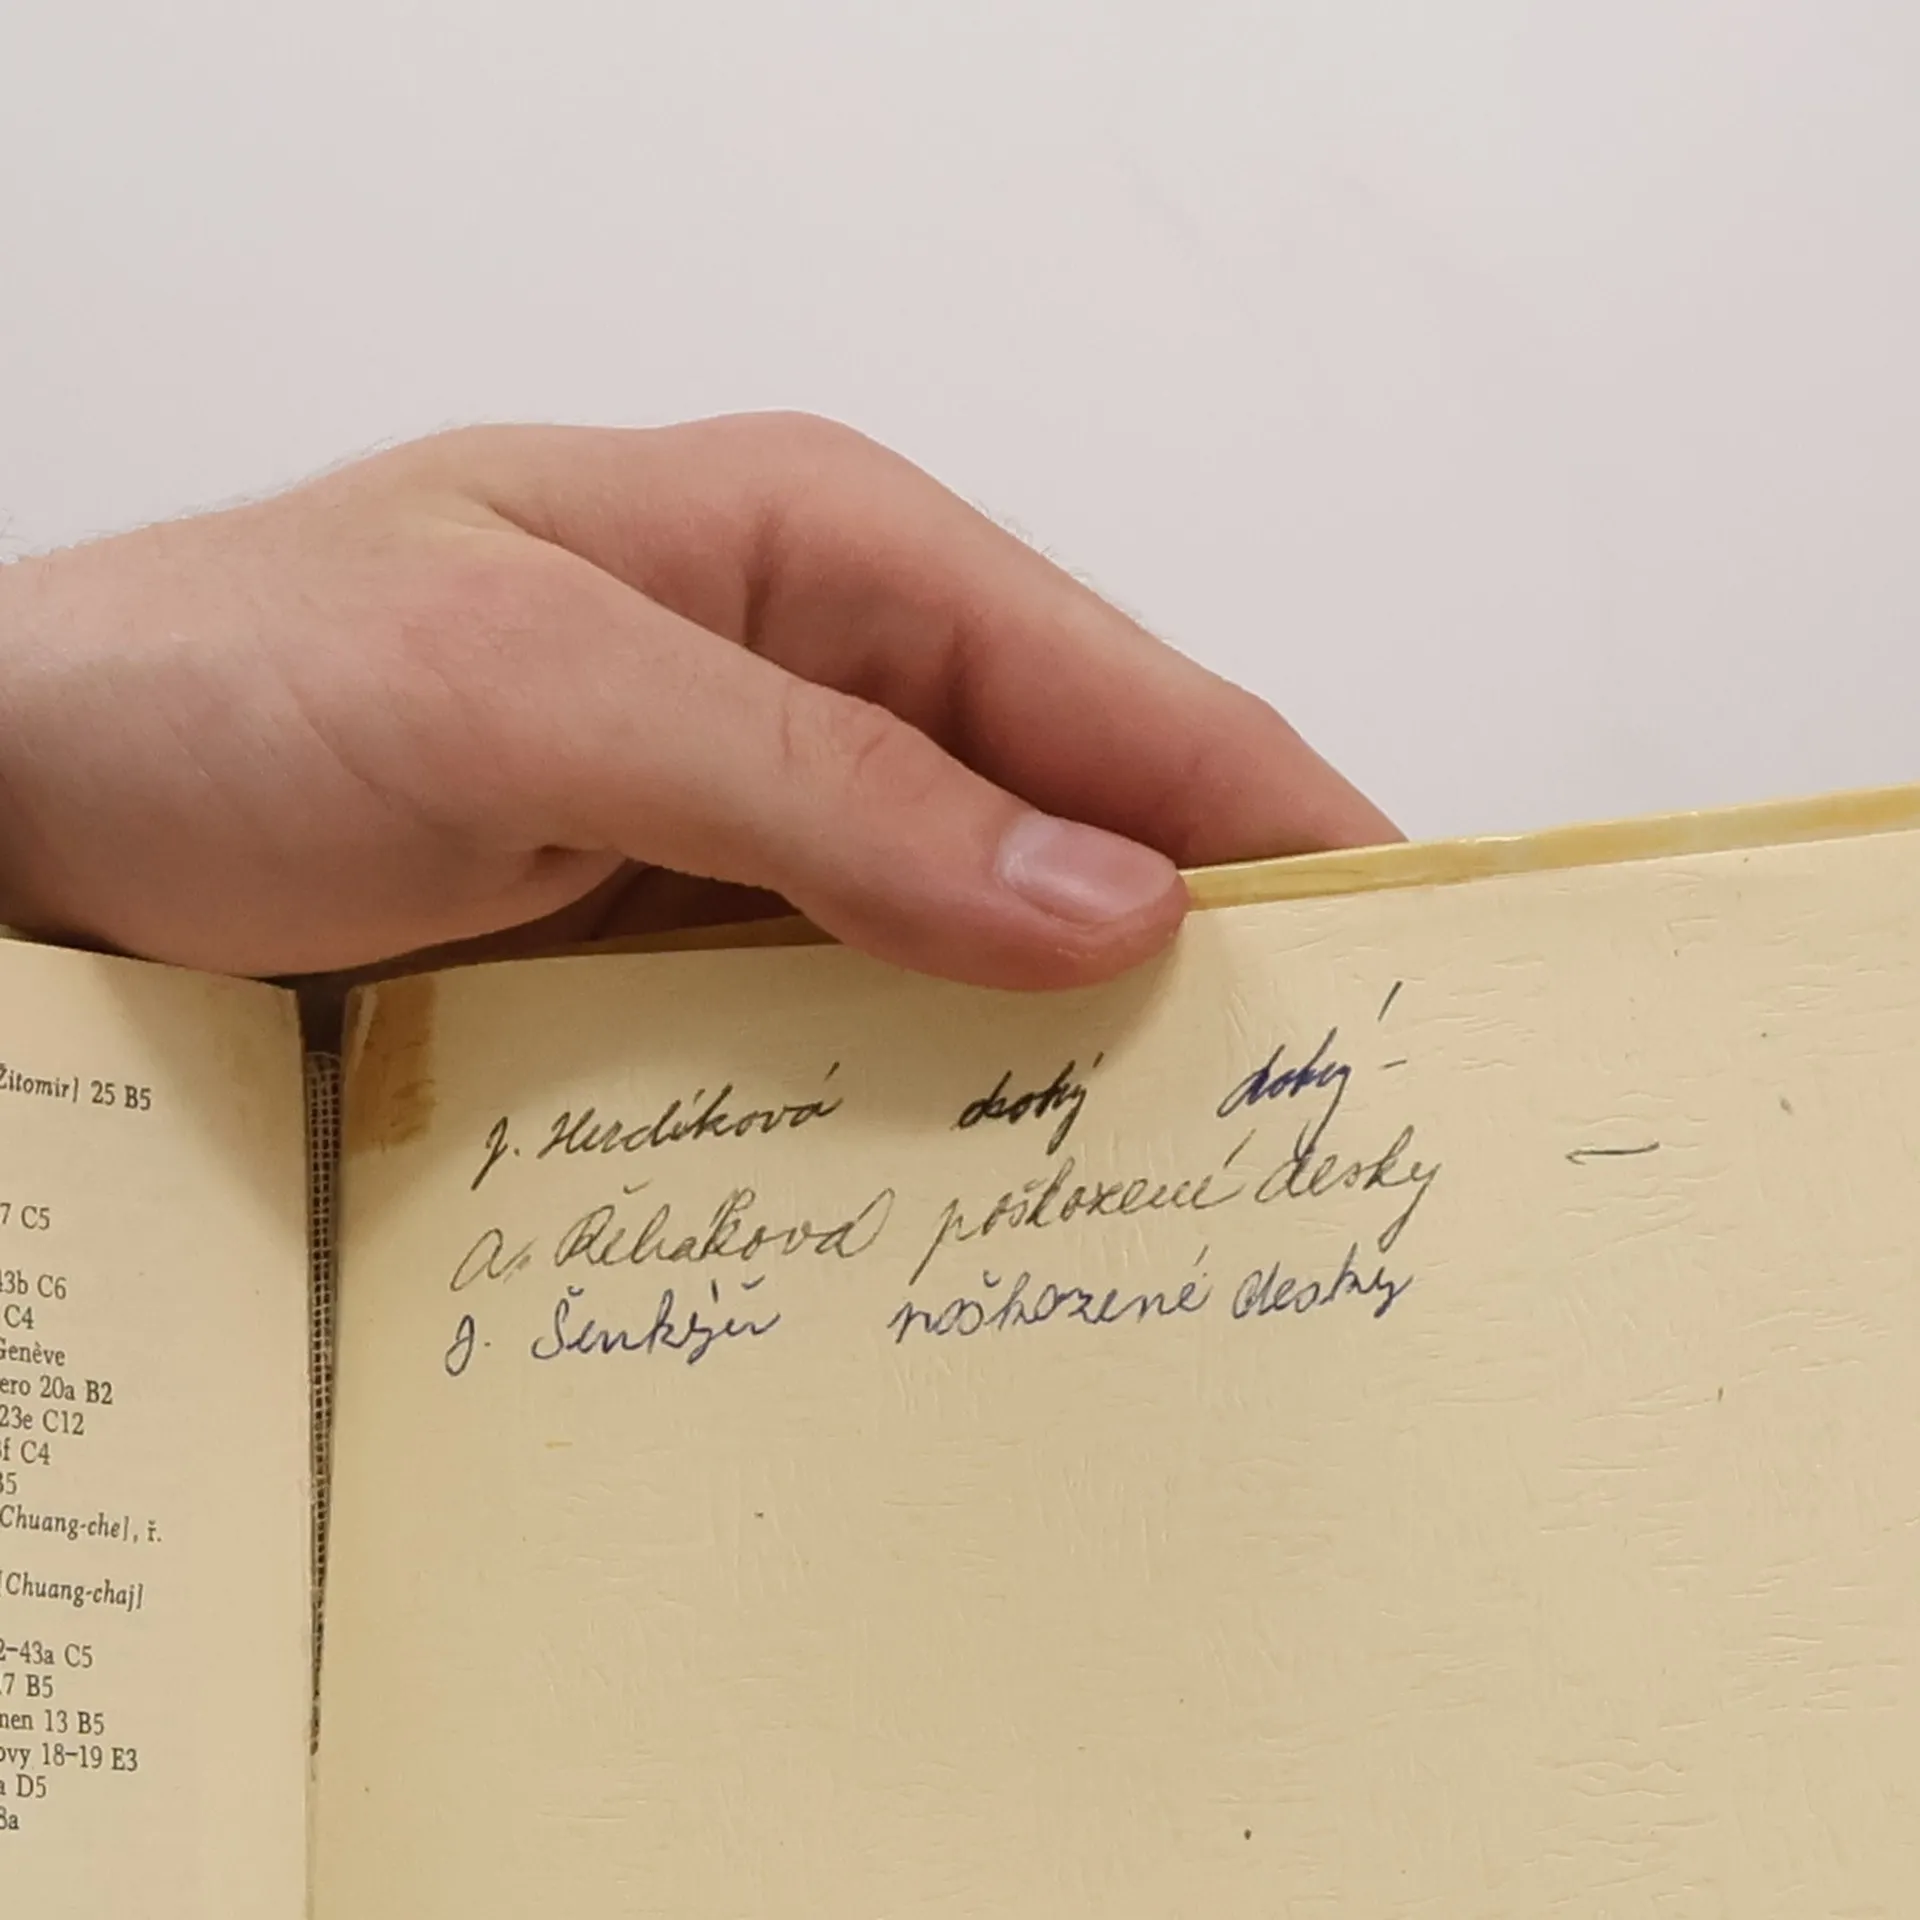 Žitomir] 25 B5
7 C5
43b C6
C4
Genève
ero 20a B2
23e C12
f C4
B5
Chuang-che], ř.
[Chuang-chaj]
2–43a C5
7 B5
men 13 B5
ovy 18–19 E3
a D5
8a
J. Herdíková dobrý dobrý -
A. Řeháková poškození desky
J. Šenkýř poškozené desky